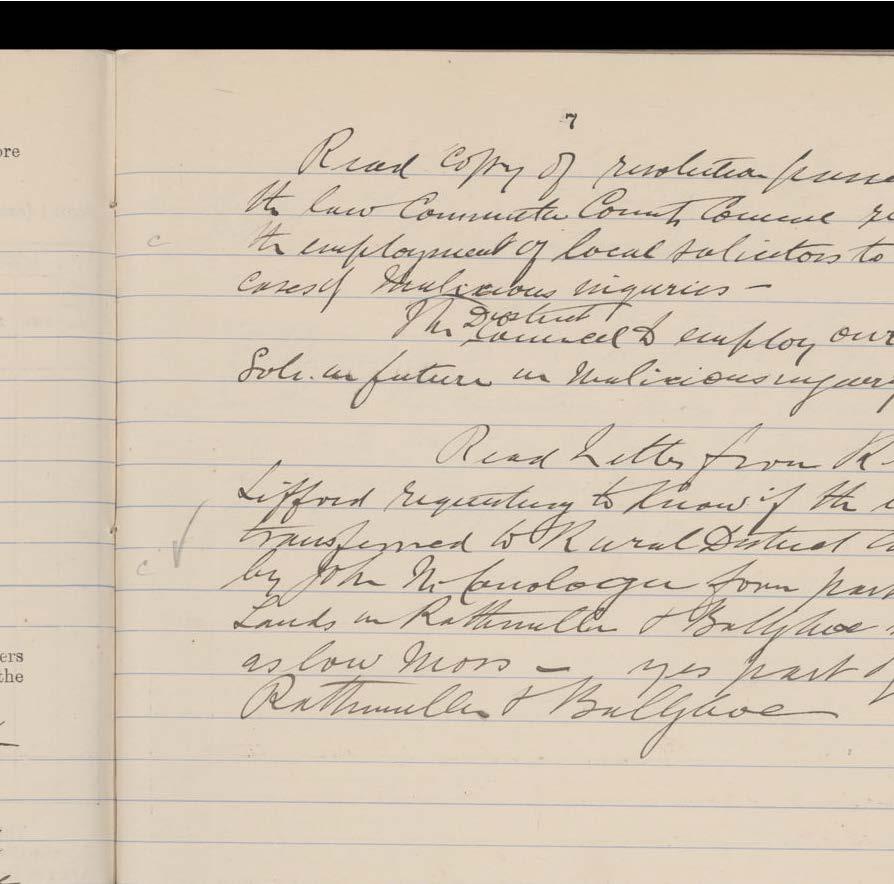 ore
ers
the
7
Read Copy of resolution passe
the law Committee County Council re
c
the employment of local solicitors to
cases of Malicious injuries -
The District
Council to employ our
Solr. in future in Malicious injury
Read Letter from R
Lifford requesting to know if the
transferred to Rural District Co
c
by John Mc form part
Lands in Rathmullen & Ballyboe
as low Moss - yes part of
Rathmullen & Ballyboe